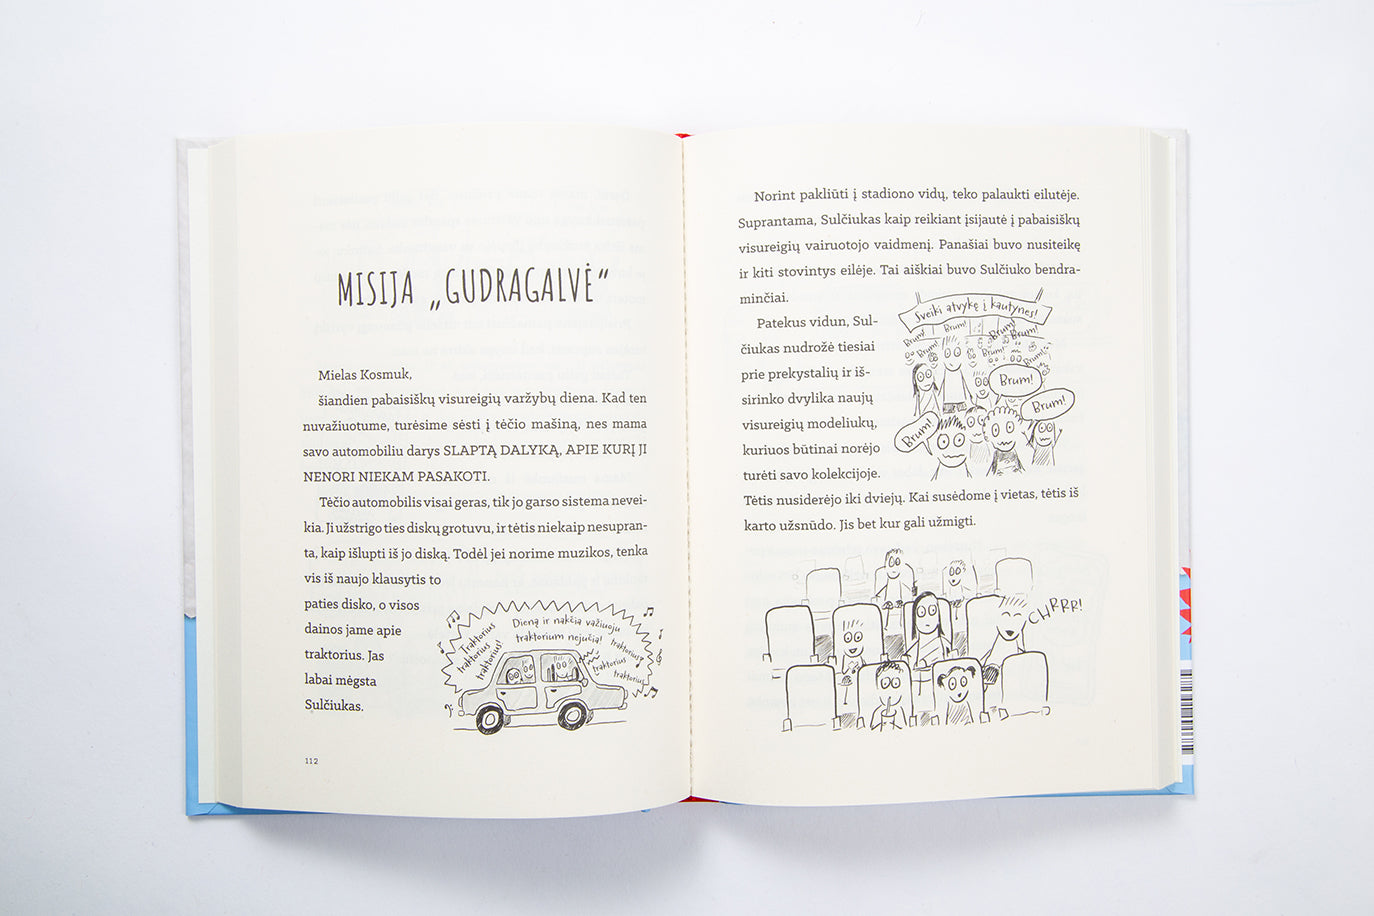 MISIJA „GUDRAGALVĖ“
Mielas Kosmuk,
šiandien pabaisiškų visureigių varžybų diena. Kad ten
nuvažiuotume, turėsime sėsti į tėčio mašiną, nes mama
savo automobiliu darys SLAPTĄ DALYKĄ, APIE KURĮ JI
NENORI NIEKAM PASAKOTI.
Tėčio automobilis visai geras, tik jo garso sistema nevei-
kia. Ji užstrigo ties diskų grotuvu, ir tėtis niekaip nesupran-
ta, kaip išlupti iš jo diską. Todėl jei norime muzikos, tenka
vis iš naujo klausytis to
paties disko, o visos
dainos jame apie
traktorius. Jas
labai mėgsta
Sulčiukas.
Traktorius
traktorius
traktorius!
Dieną ir nakčia važiuoju
traktorium nejučia!
traktorius?
traktorius
traktorius
112
Norint pakliūti į stadiono vidų, teko palaukti eilutėje.
Suprantama, Sulčiukas kaip reikiant įsijautė į pabaisiškų
visureigių vairuotojo vaidmenį. Panašiai buvo nusiteikę
ir kiti stovintys eilėje. Tai aiškiai buvo Sulčiuko bendra-
minčiai.
Patekus vidun, Sul-
čiukas nudrožė tiesiai
prie prekystalių ir iš-
sirinko dvylika naujų
visureigių modeliukų,
kuriuos būtinai norėjo
turėti savo kolekcijoje.
Tėtis nusiderėjo iki dviejų. Kai susėdome į vietas, tėtis iš
karto užsnūdo. Jis bet kur gali užmigti.
Sveiki atvykę į kautynes!
Brum!
Brum!
Brum!
Brum!
Brum!
Brum!
Brum!
Brum!
Brum!
Brum!
Brum!
CHRRR!